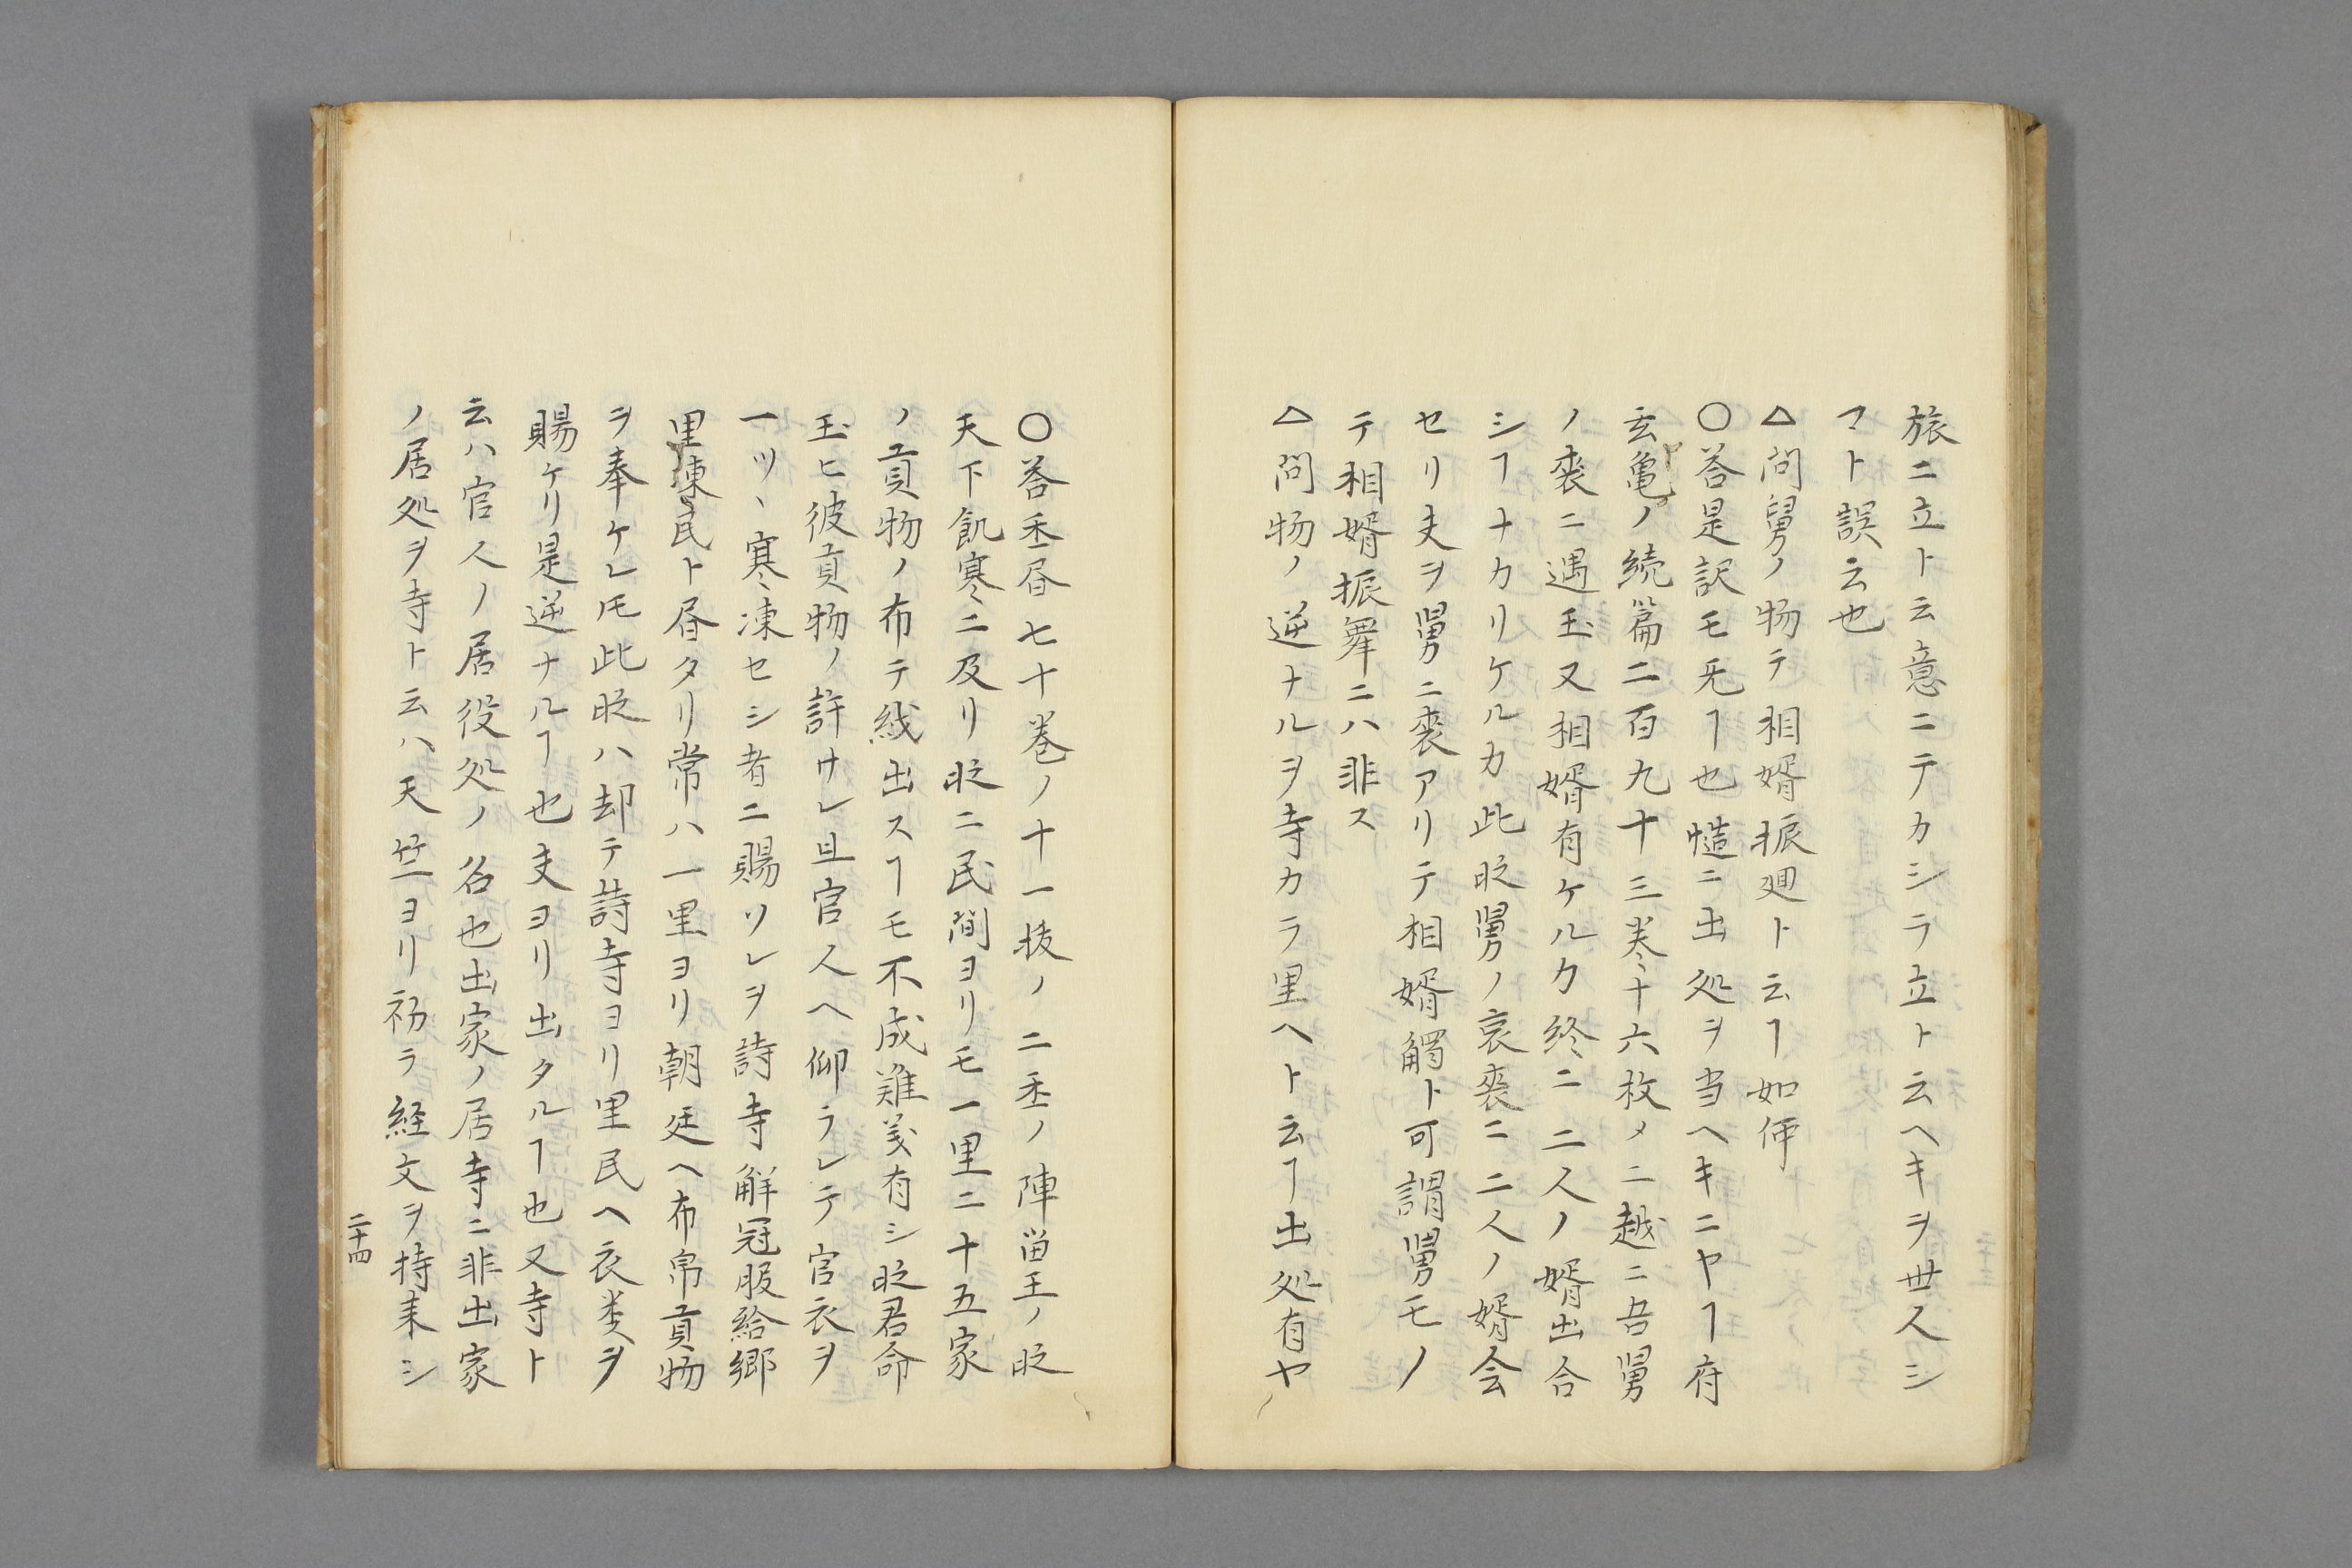 旅ニ立ト云意ニテカシラ立ト云ヘキヲ世人シ
マト誤云也
△問舅ノ物テ相婿振廻ト云ヿ如何
〇答是訳モ旡ヿ也慥ニ出処ヲ当ヘキニヤヿ府
玄亀ノ続篇二百九十三巻十六枚メニ越ニ吾舅
ノ喪ニ遇玉又相婿有ケルカ終ニ二人ノ婿出合
シヿナカリケルカ此時舅ノ哀喪ニ二人ノ婿会
セリ夫ヲ舅ニ喪アリテ相婿觸ト可謂舅モノ
テ相婿振舞ニハ非ス
△問物ノ逆ナルヲ寺カラ里ヘト云ヿ出処有ヤ
〇答丕昏七十巻ノ十一枚ノ二丕ノ陣畄王ノ時
天下飢寒ニ及リ時ニ民間ヨリモ一里ニ十五家
ノ貢物ノ布テ綫出スヿモ不成難義有シ時君命
玉ヒ彼貢物ノ許ケレ且官人ヘ仰ラレテ官衣ヲ
一ツヽ寒凍セシ者ニ賜ソレヲ詩寺解冠服給郷
里凍民ト昏タリ常ハ一里ヨリ朝廷ヘ布帛貢物
ヲ奉ケレ𪜈此時ハ却テ詩寺ヨリ里民ヘ衣类ヲ
賜ケリ是逆ナルヿ也夫ヨリ出タルヿ也又寺ト
云ハ官人ノ居役処ノ名也出家ノ居寺ニ非出家
ノ居処ヲ寺ト云ハ天竺ヨリ初ラ経文ヲ持来シ
二十四